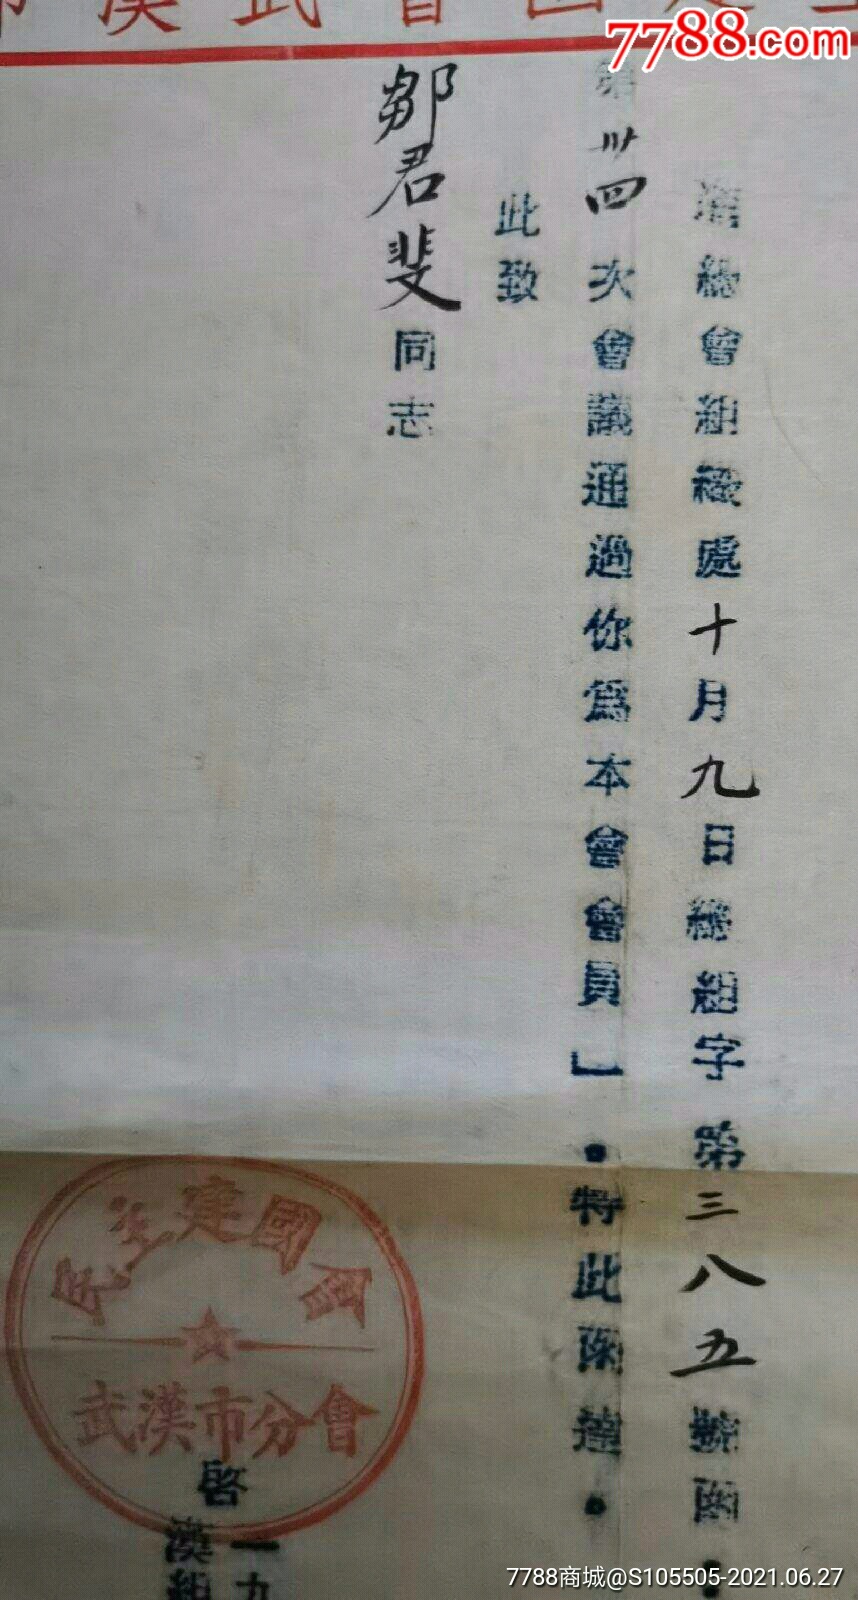 漢武會國建
7788.com
准總會組織處十月九日總組字第三八五號函·
第卅四次會議通過你為本會會員」·特此函達·
此致
鄒君斐同志
民主建國會
武漢市分會
啓
一九
漢組
7788商城@S105505-2021.06.27